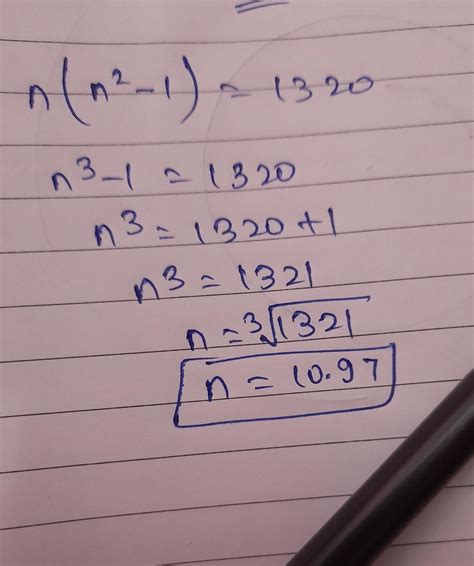 n(n²-1) = 1320
n³-1 = 1320
n³ = 1320+1
n³ = 1321
n = ³√1321
n = 10.97